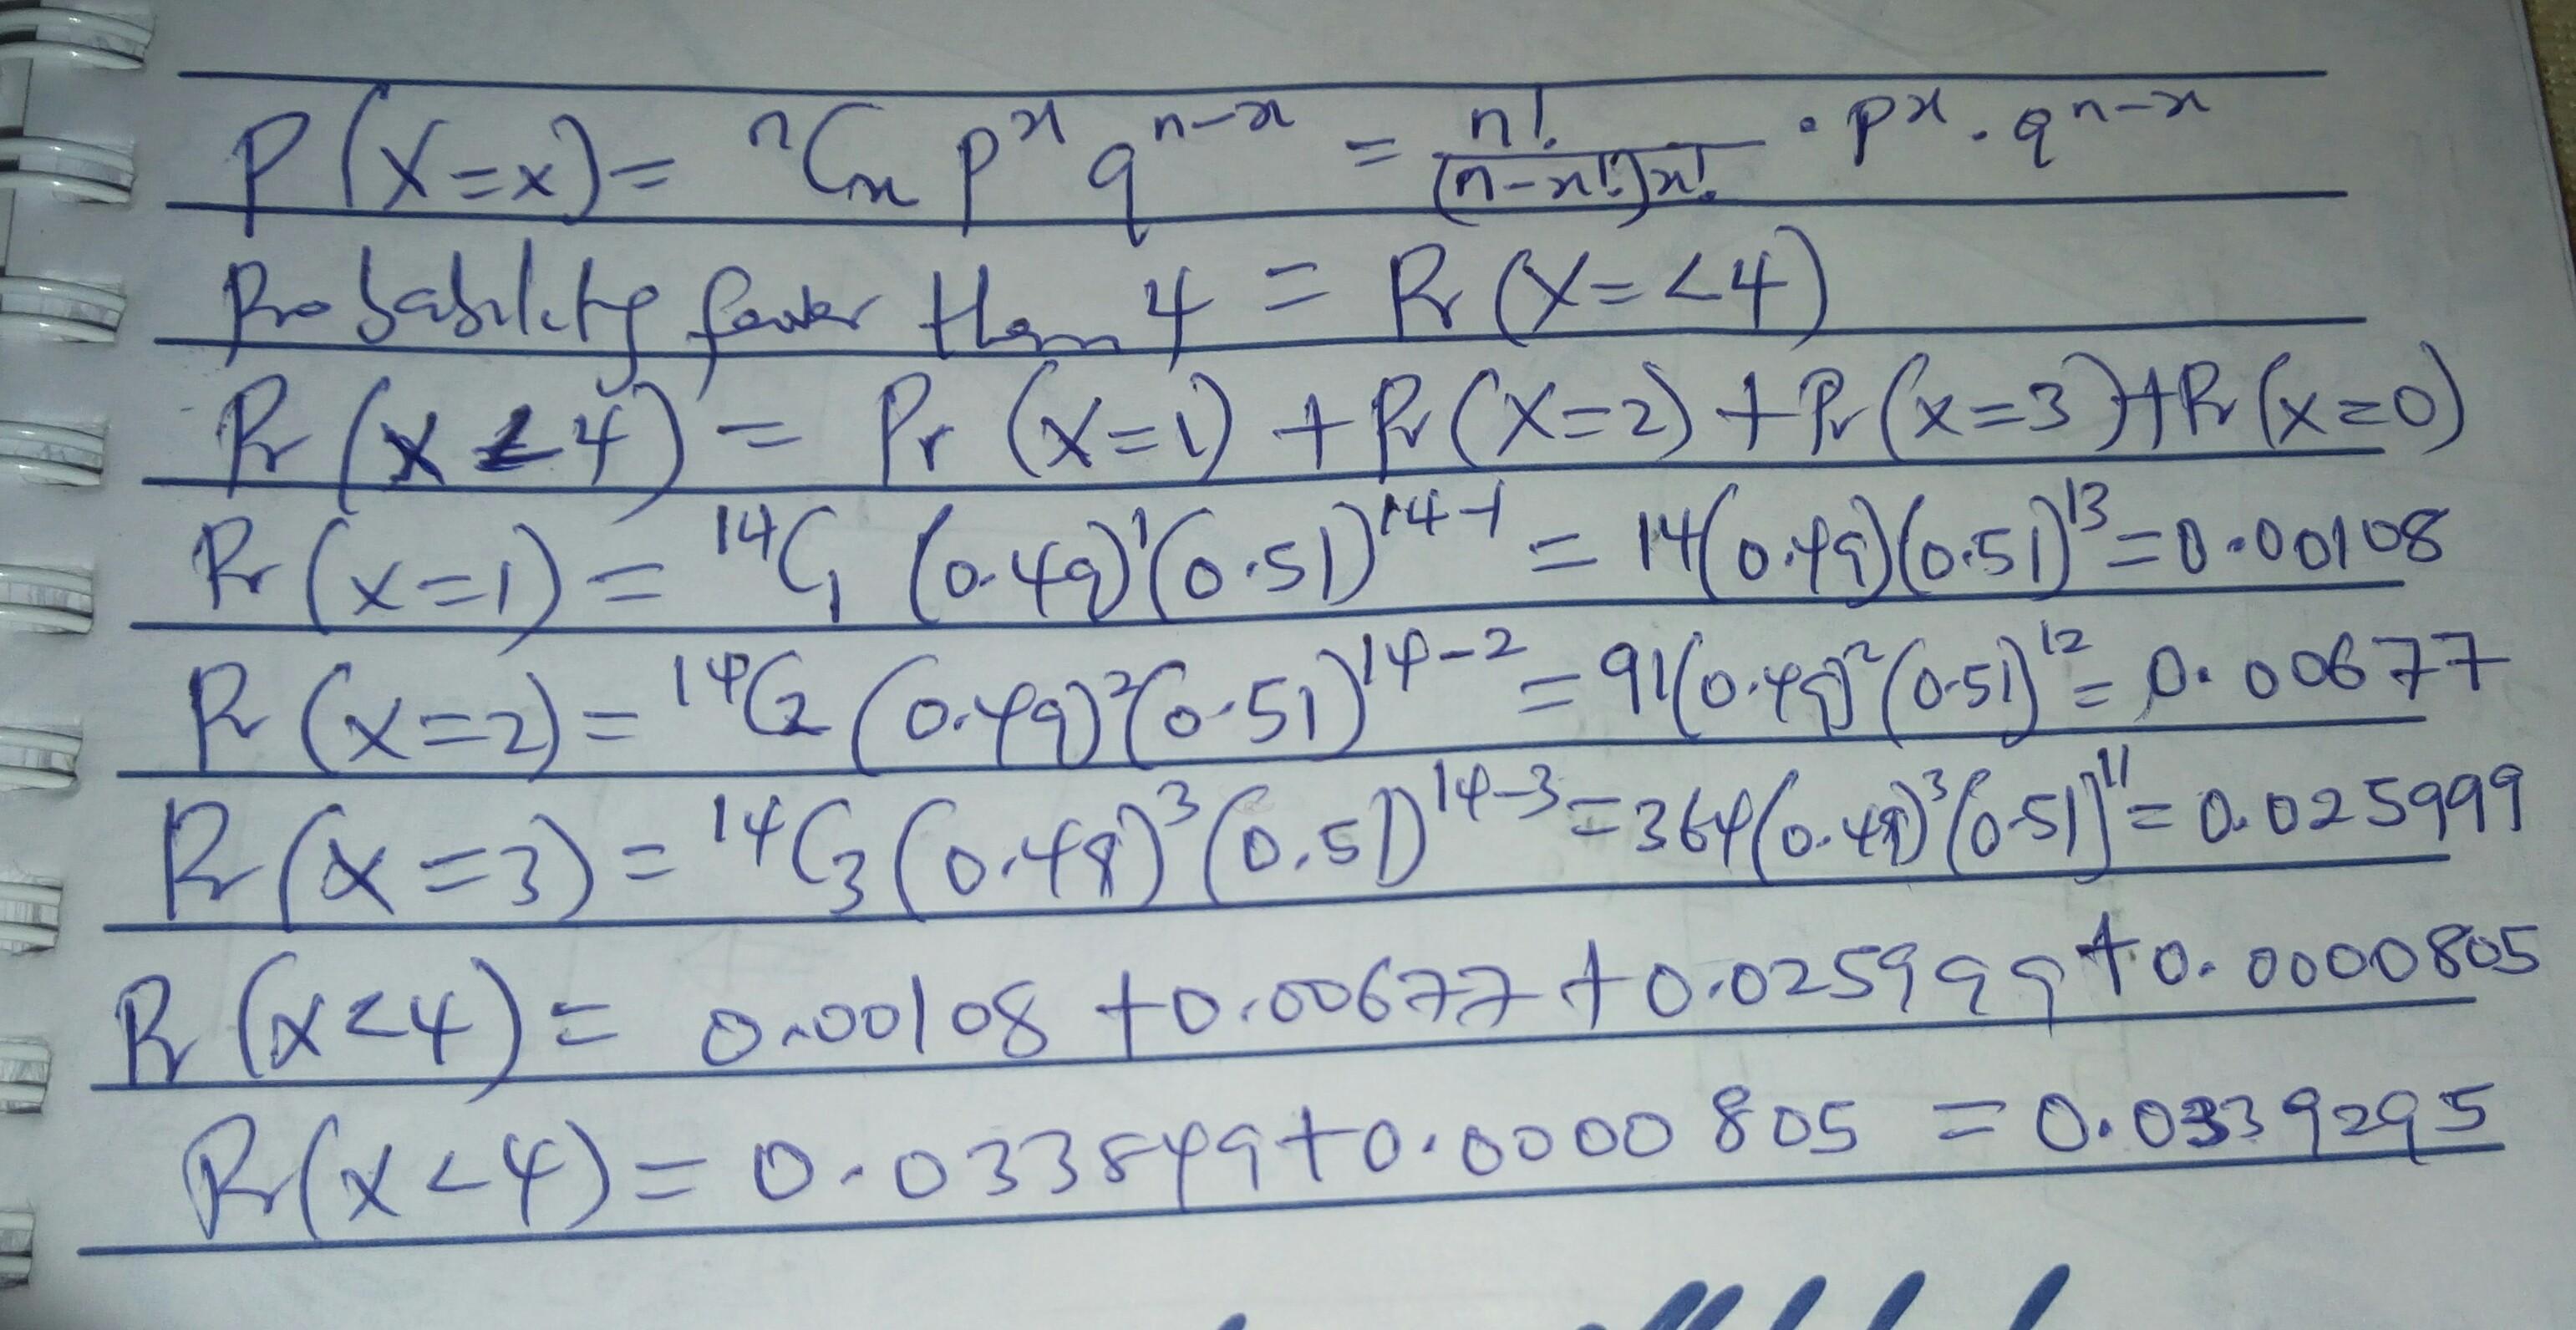 P(X=x) = ⁿCₓ pˣ qⁿ⁻ˣ = n!/(n-x!)x! · pˣ · qⁿ⁻ˣ
Probability fewer than 4 = Pr(X=<4)
Pr(X<4) = Pr(X=1) + Pr(X=2) + Pr(X=3) + Pr(X=0)
Pr(X=1) = ¹⁴C₁ (0.49)¹(0.51)¹⁴⁻¹ = 14(0.49)(0.51)¹³ = 0.00108
Pr(X=2) = ¹⁴C₂ (0.49)²(0.51)¹⁴⁻² = 91(0.49)²(0.51)¹² = 0.00677
Pr(X=3) = ¹⁴C₃ (0.48)³(0.51)¹⁴⁻³ = 364(0.49)³(0.51)¹¹ = 0.025999
Pr(X<4) = 0.00108 + 0.00677 + 0.025999 + 0.0000805
Pr(X<4) = 0.033849 + 0.0000805 = 0.0339295